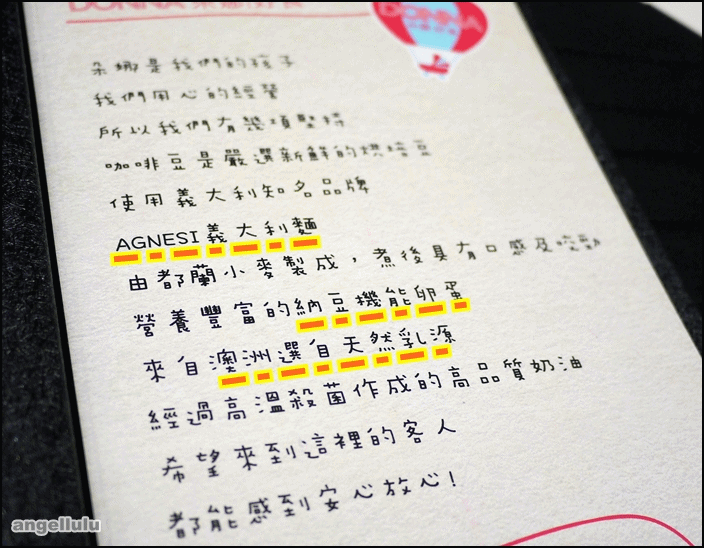 DONNA
DONNA
朵娜是我們的孩子
我們用心的經營
所以我們有幾項堅持
咖啡豆是嚴選新鮮的烘培豆
使用義大利知名品牌
AGNESI義大利麵
由都蘭小麥製成，煮後具有口感及咬勁
營養豐富的納豆機能卵蛋
來自澳洲選自天然乳源
經過高溫殺菌作成的高品質奶油
希望來到這裡的客人
都能感到安心放心!
angellulu